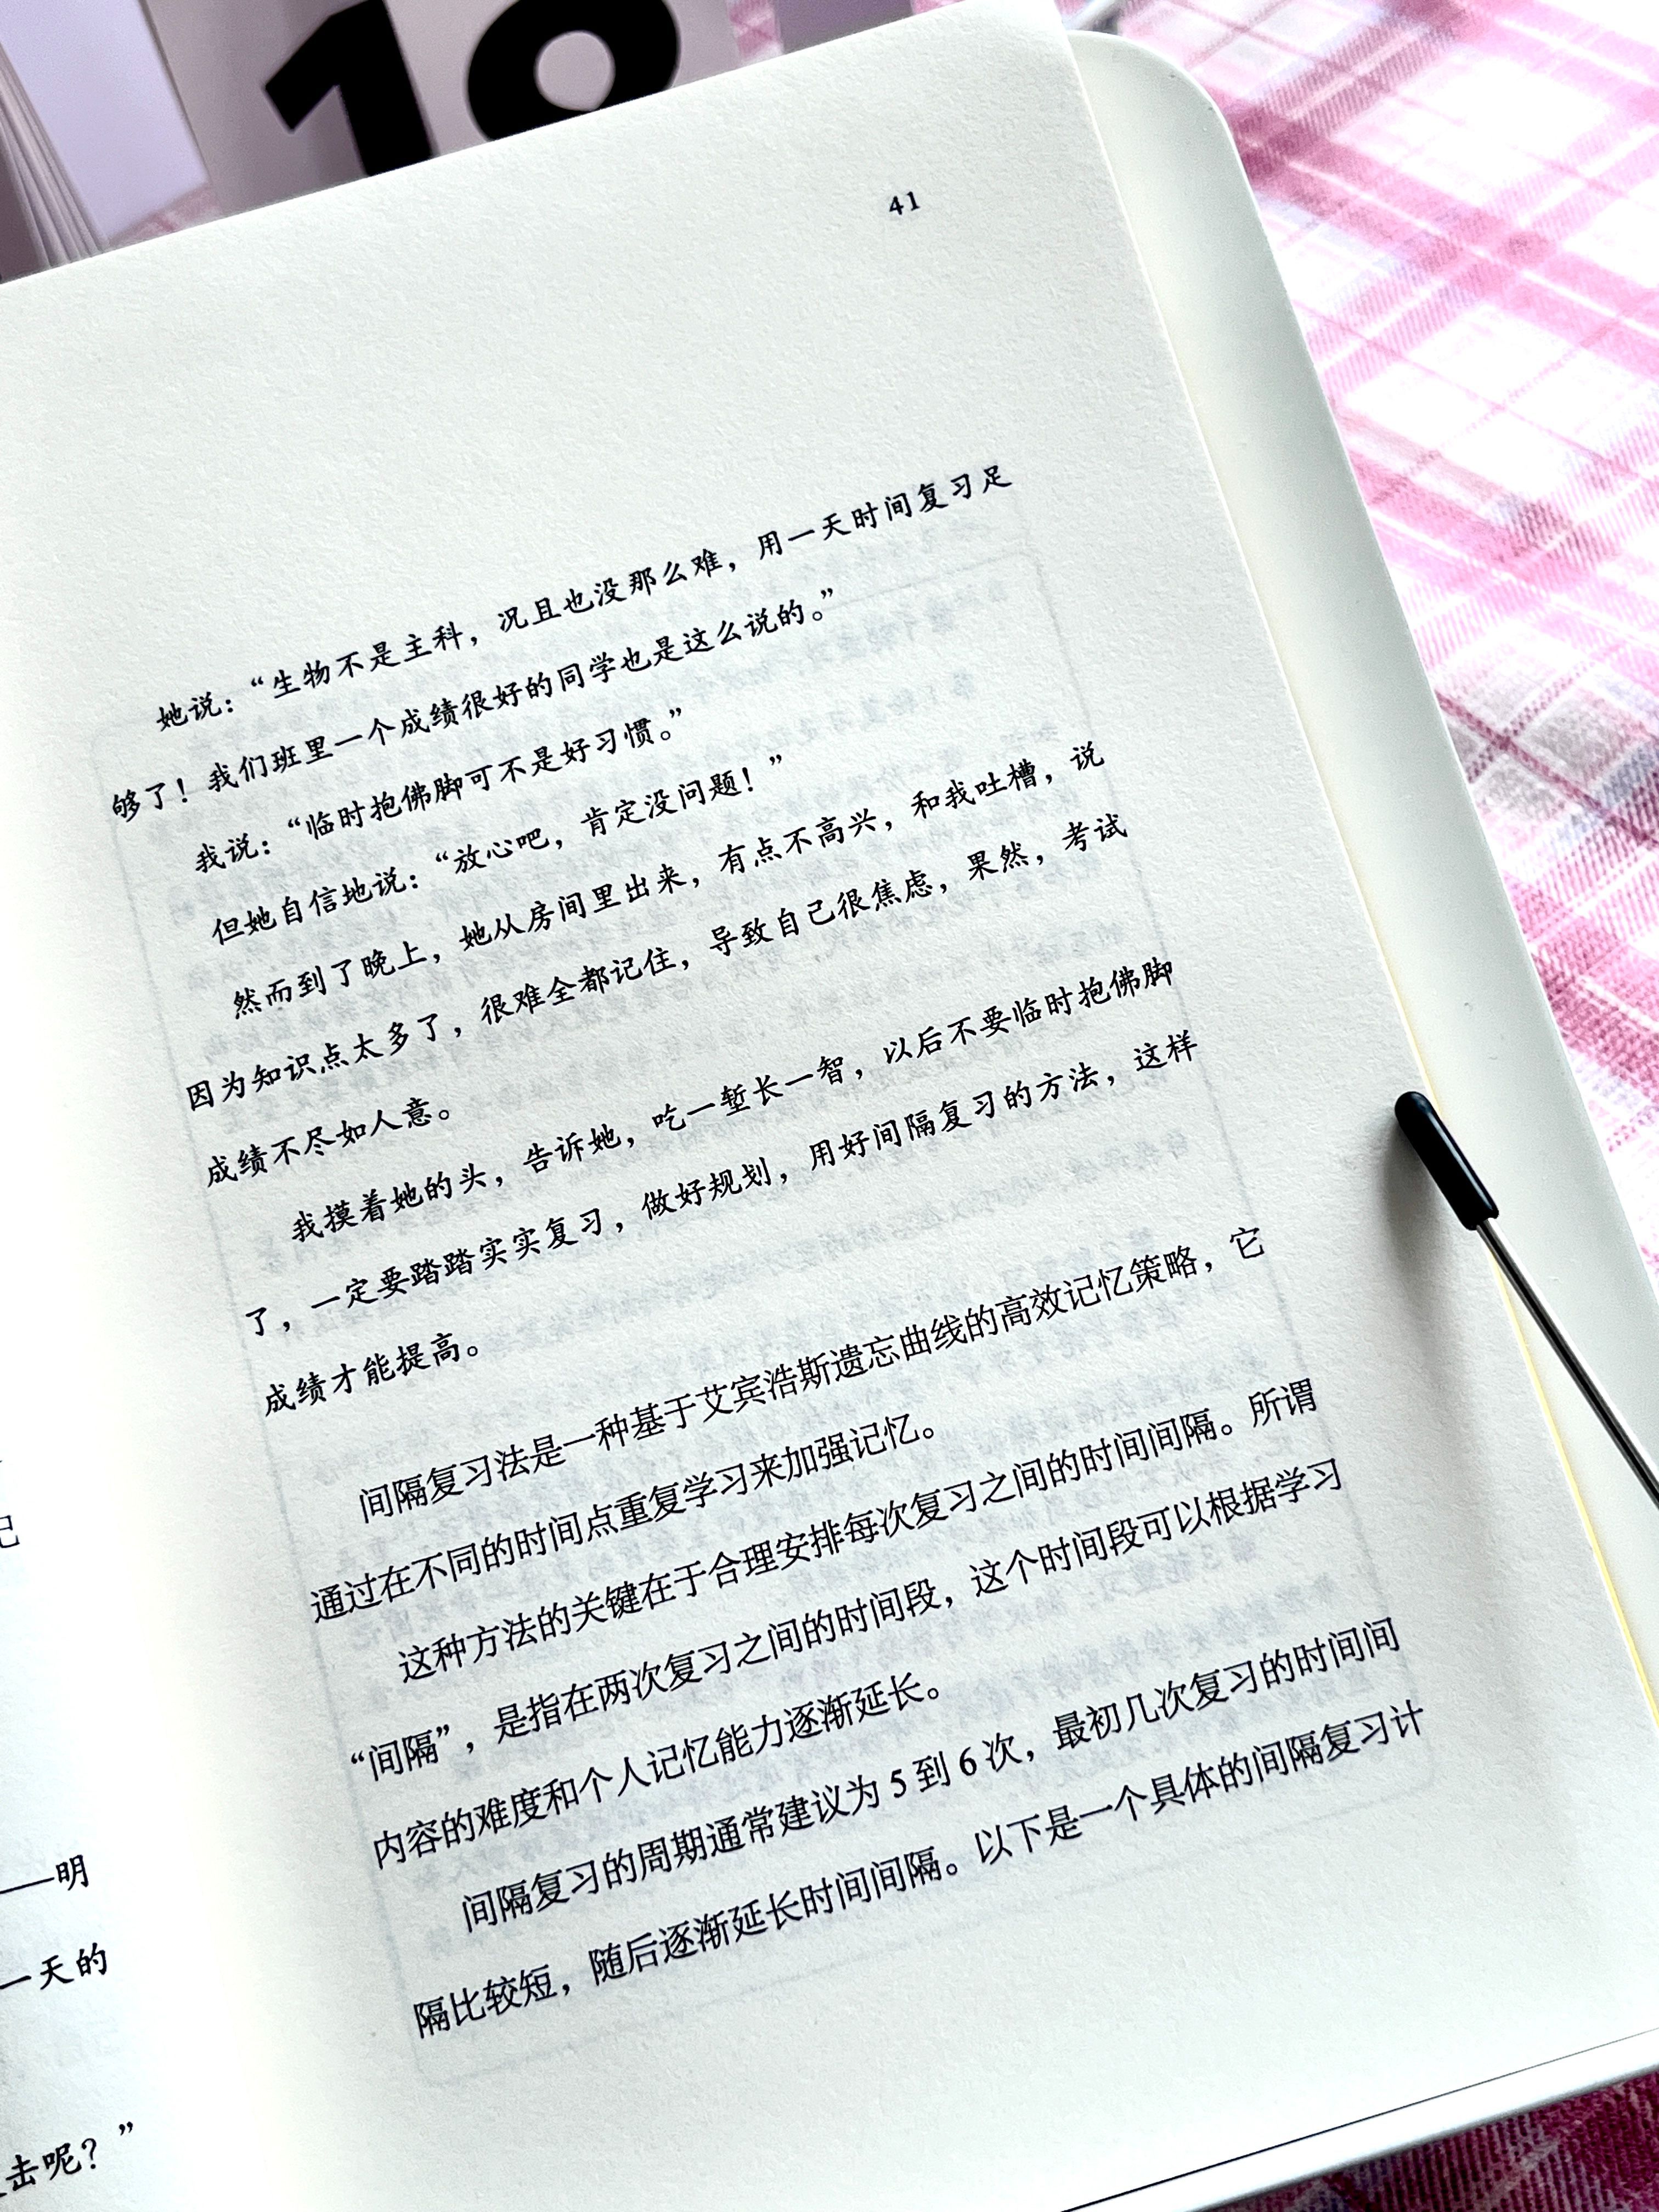 19
41
她说：“生物不是主科，况且也没那么难，用一天时间复习足
够了！我们班里一个成绩很好的同学也是这么说的。”
我说：“临时抱佛脚可不是好习惯。”
但她自信地说：“放心吧，肯定没问题！”
然而到了晚上，她从房间里出来，有点不高兴，和我吐槽，说
因为知识点太多了，很难全都记住，导致自己很焦虑，果然，考试
成绩不尽如人意。
我摸着她的头，告诉她，吃一堑长一智，以后不要临时抱佛脚
了，一定要踏踏实实复习，做好规划，用好间隔复习的方法，这样
成绩才能提高。
间隔复习法是一种基于艾宾浩斯遗忘曲线的高效记忆策略，它
通过在不同的时间点重复学习来加强记忆。
这种方法的关键在于合理安排每次复习之间的时间间隔。所谓
“间隔”，是指在两次复习之间的时间段，这个时间段可以根据学习
内容的难度和个人记忆能力逐渐延长。
间隔复习的周期通常建议为 5 到 6 次，最初几次复习的时间间
隔比较短，随后逐渐延长时间间隔。以下是一个具体的间隔复习计
——明
一天的
击呢？”